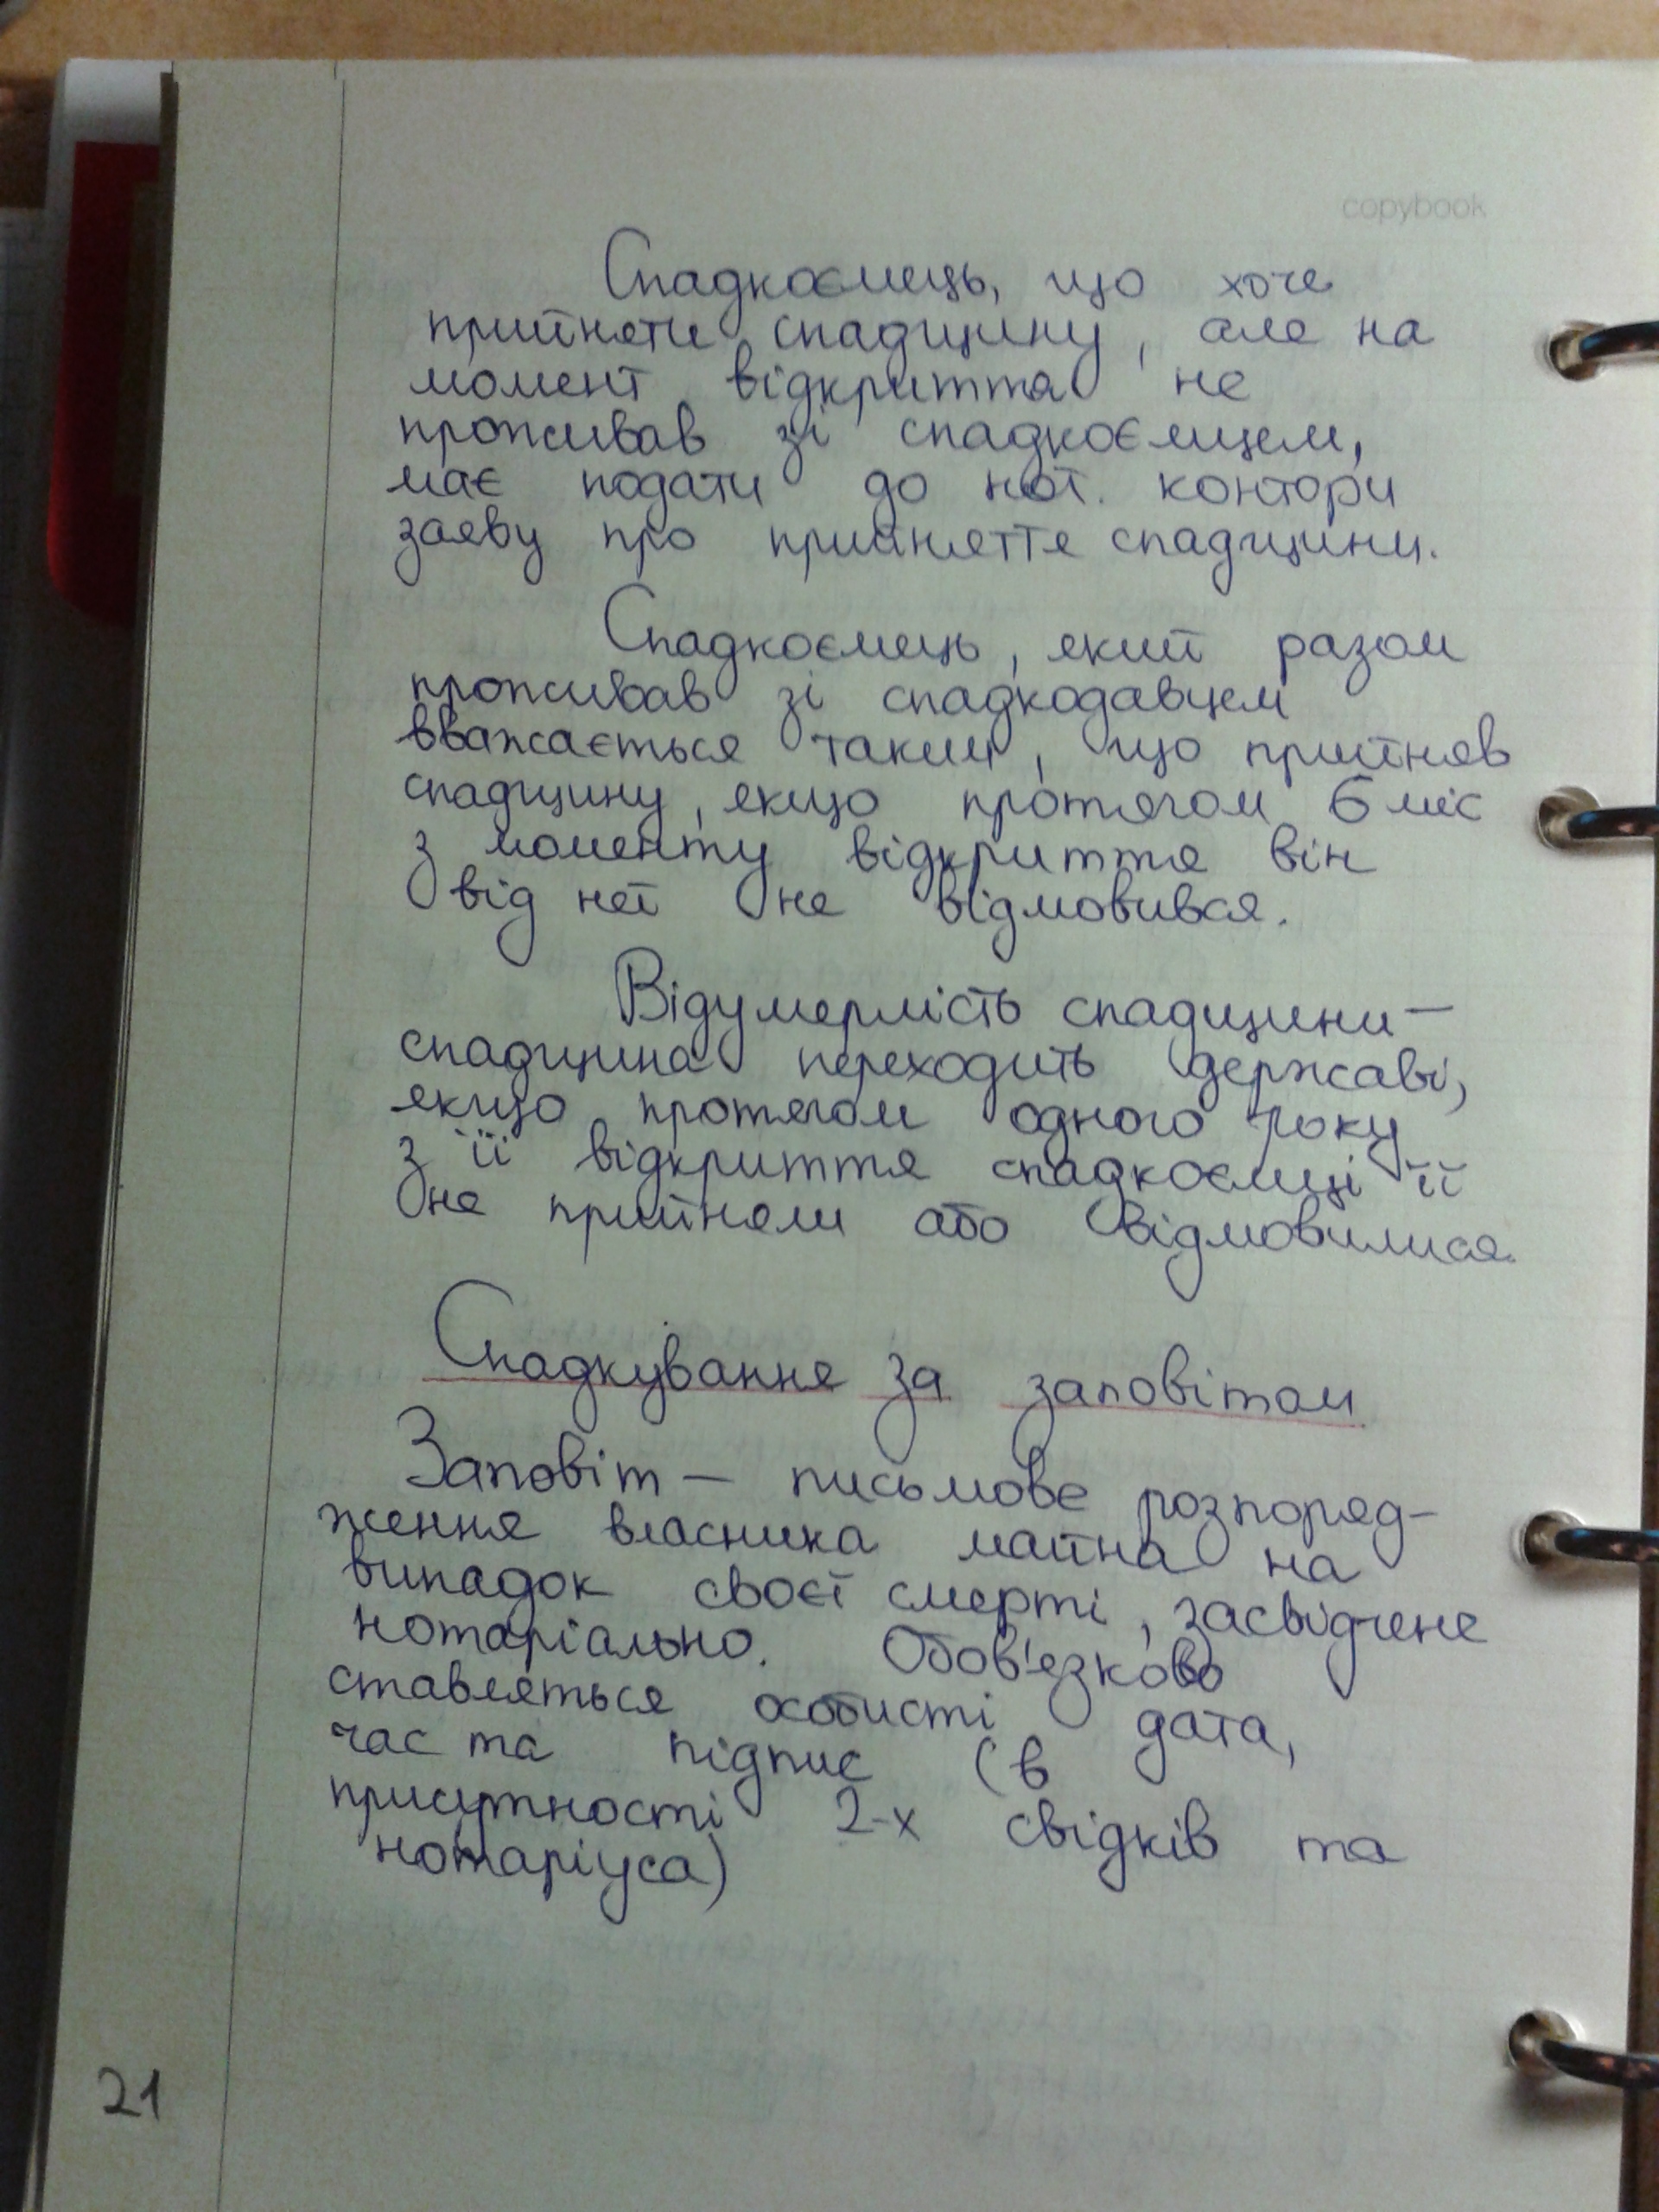 copybook
Спадкоємець, що хоче
прийняти спадщину, але на
момент відкриття не
проживав зі спадкоємцем,
має подати до нот. контори
заяву про прийняття спадщини.
Спадкоємець, який разом
проживав зі спадкодавцем
вважається таким, що прийняв
спадщину, якщо протягом 6 міс
з моменту відкриття він
від неї не відмовився.
Відумерлість спадщини —
спадщина переходить державі,
якщо протягом одного року
з її відкриття спадкоємці її
не прийняли або відмовилися.
Спадкування за заповітом
Заповіт — письмове розпоряд-
ження власника майна на
випадок своєї смерті, засвідчене
нотаріально. Обов'язково
ставляться особисті дата,
час та підпис (в
присутності 2-х свідків та
нотаріуса)
21